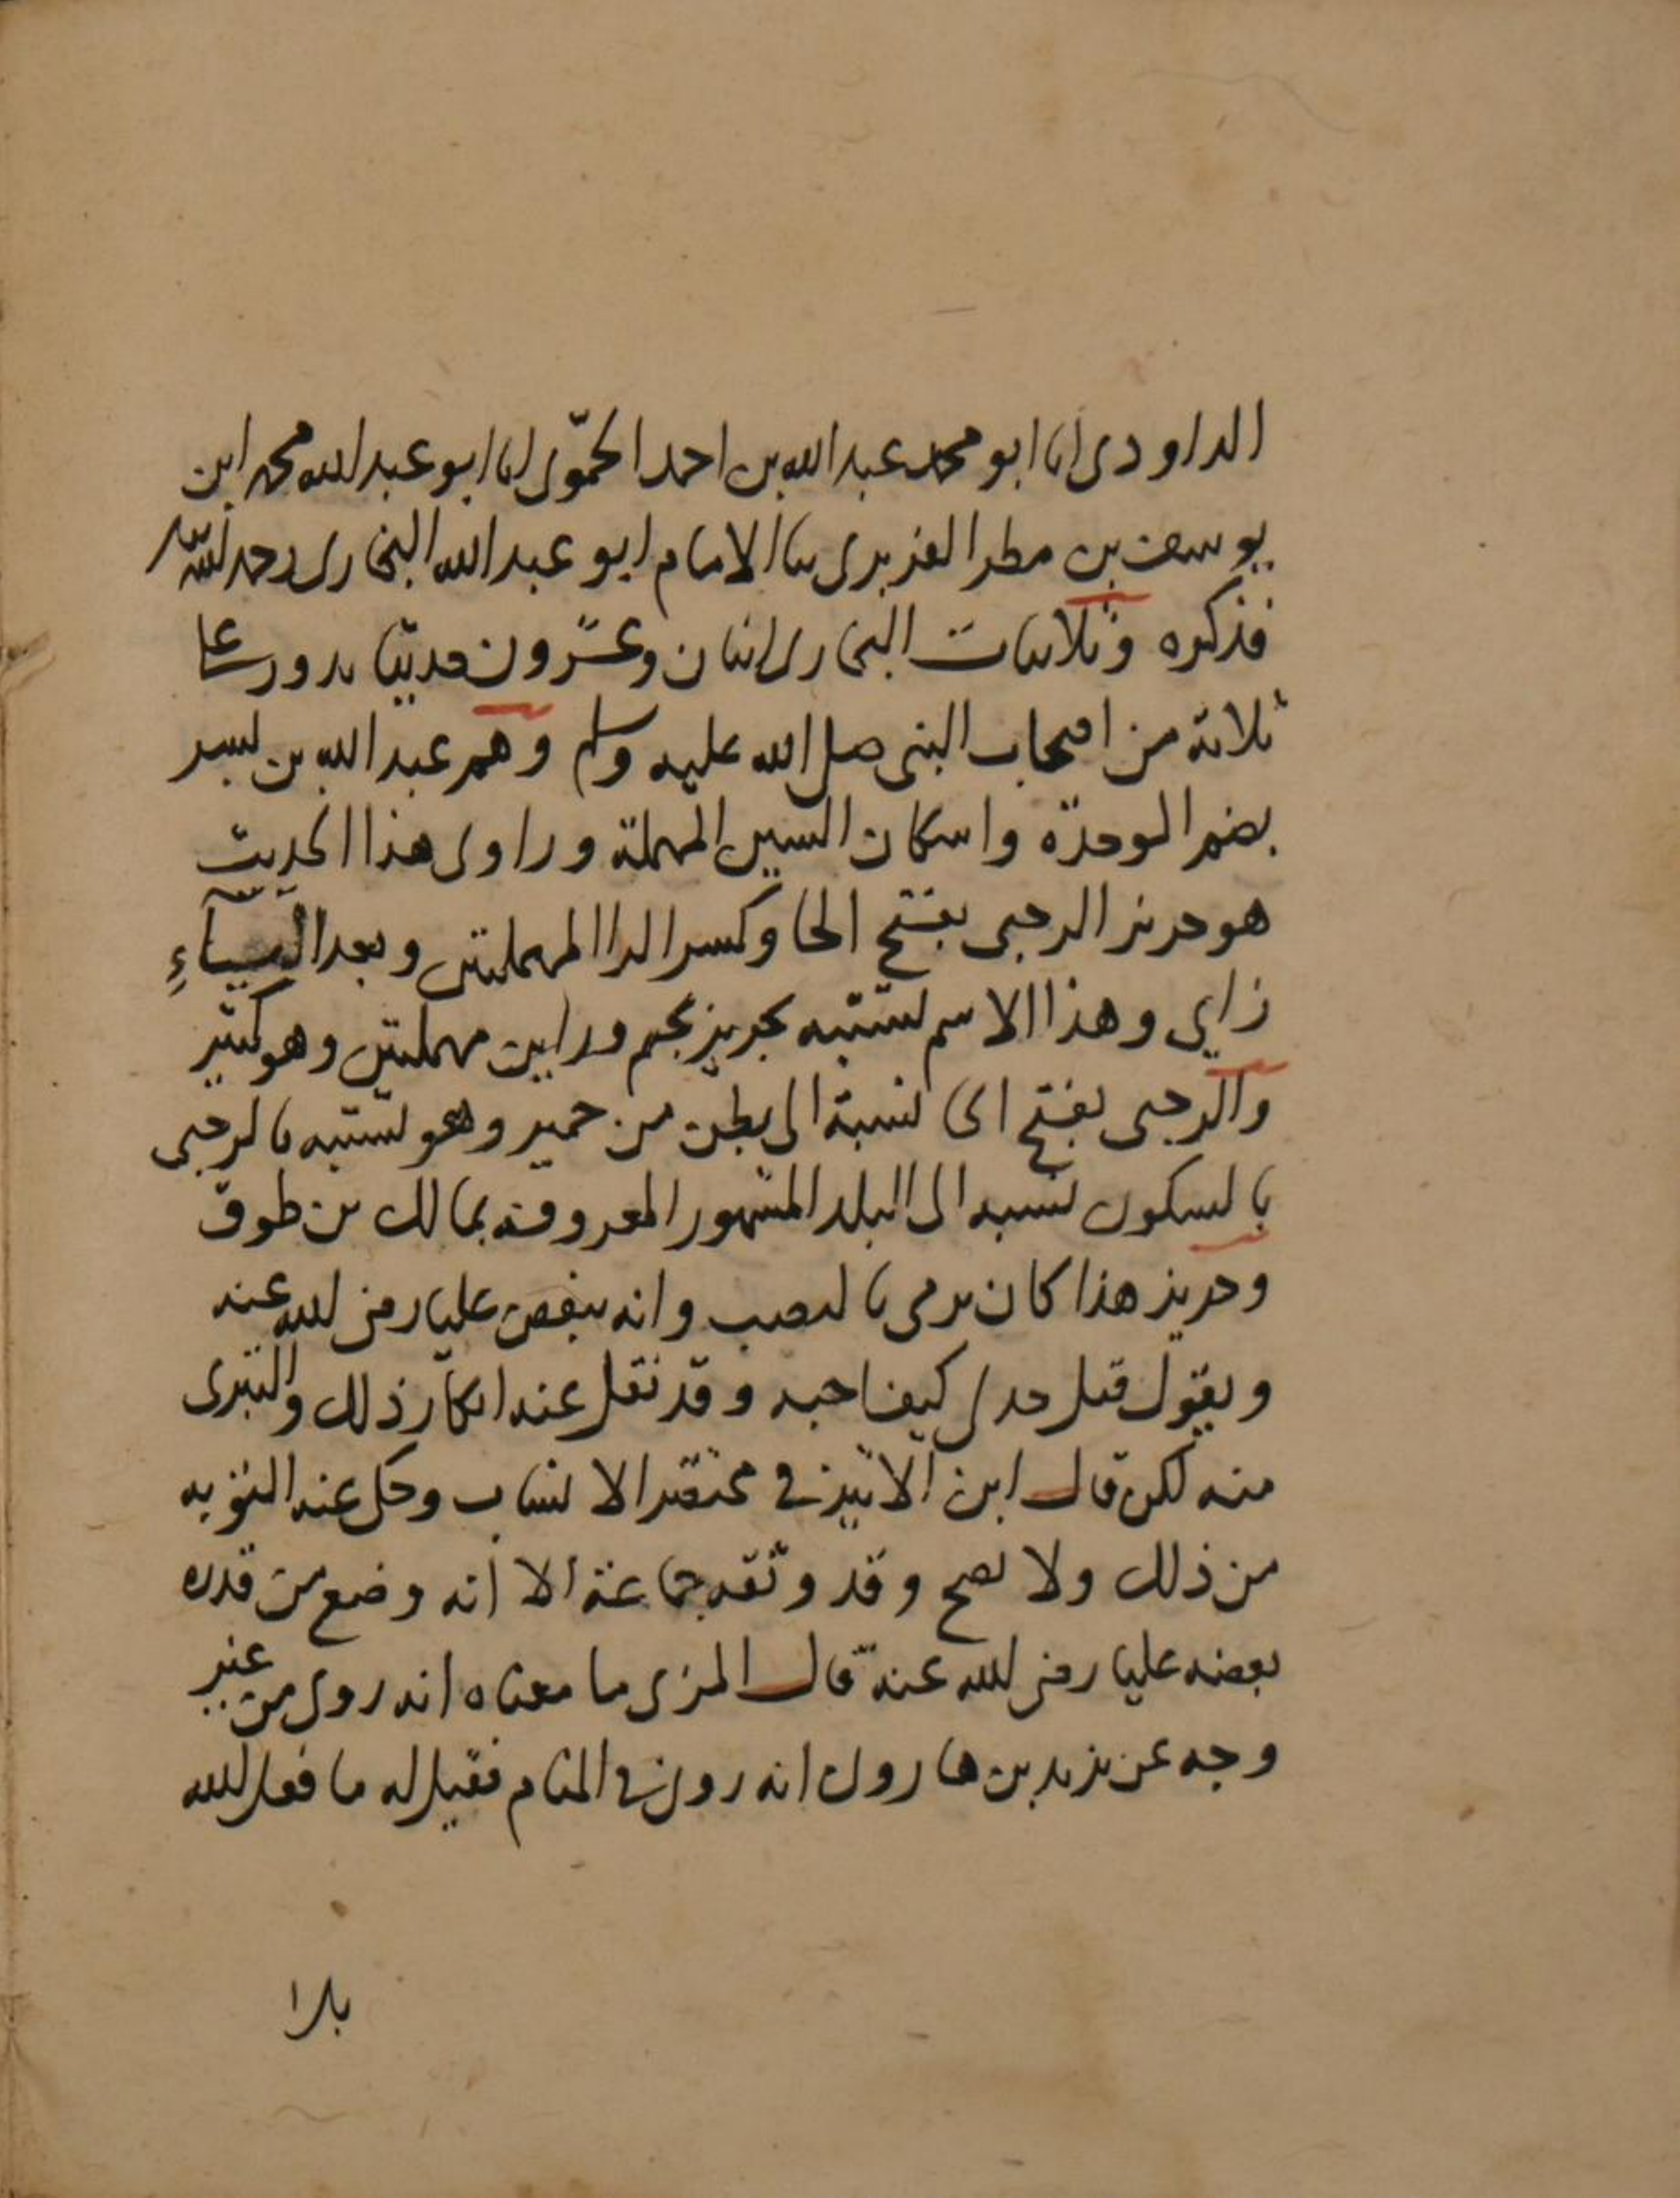 الداودى انا ابو محمد عبد الله بن احمد الحموى انا ابو عبد الله محمد ابن
يوسف بن مطر الفربرى ثنا الامام ابو عبد الله البخارى رحمه الله
فذكره وثلاثيات البخارى اثنان وعشرون حديثا تدور على
ثلاثة من اصحاب النبى صلى الله عليه وسلم وهم عبد الله بن بسر
بضم الموحدة واسكان السين المهملة وراوى هذا الحديث
هو حريز الرحبى بفتح الحا وكسر الرا المهملتين وبعد الياء
زاى وهذا الاسم يشتبه بجرير بجيم ورايين مهملتين وهو كثير
والرحبى بفتح الحا نسبة الى بطن من حمير وهو يشتبه بالرحبى
بالسكون نسبه الى البلد المشهور المعروفة بمالك بن طوق
وحريز هذا كان يرمى بالنصب وانه يبغض عليا رضى الله عنه
ويقول قتل جدى كيف احبه وقد نقل عنه انكار ذلك والتبرى
منه لكن قال ابن الاثير فى مختصر الانساب وحكى عنه التوبه
من ذلك ولا يصح وقد وثقه جماعة الا انه وضع من قدره
بغضه عليا رضى الله عنه قال المزى ما معناه انه روى من غير
وجه عن يزيد بن هارون انه روى فى المنام فقيل له ما فعل الله